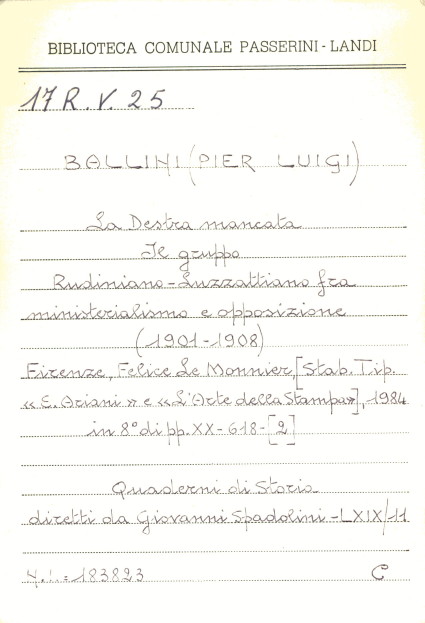 BIBLIOTECA COMUNALE PASSERINI - LANDI
17 R. V. 25
BALLINI (PIER LUIGI)
La Destra mancata
Il gruppo
Rudiniano-Luzzattiano fra
ministerialismo e opposizione
(1901-1908)
Firenze, Felice Le Monnier, [Stab. Tip.
«E. Ariani» e «L'Arte della Stampa»], 1984
in 8° di pp. XX-618-[2]
Quaderni di Storia
diretti da Giovanni Spadolini - LXIX/11
N.i.: 183823 C